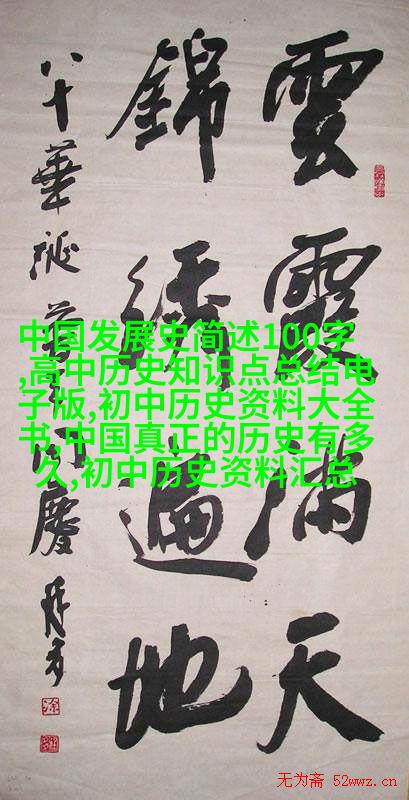 雲霞满天
錦繡遍地
八十華诞
同慶
中国发展史简述100字
,高中历史知识点总结电
子版,初中历史资料大全
书,中国真正的历史有多
久,初中历史资料汇总
无为斋 52wwz.cn